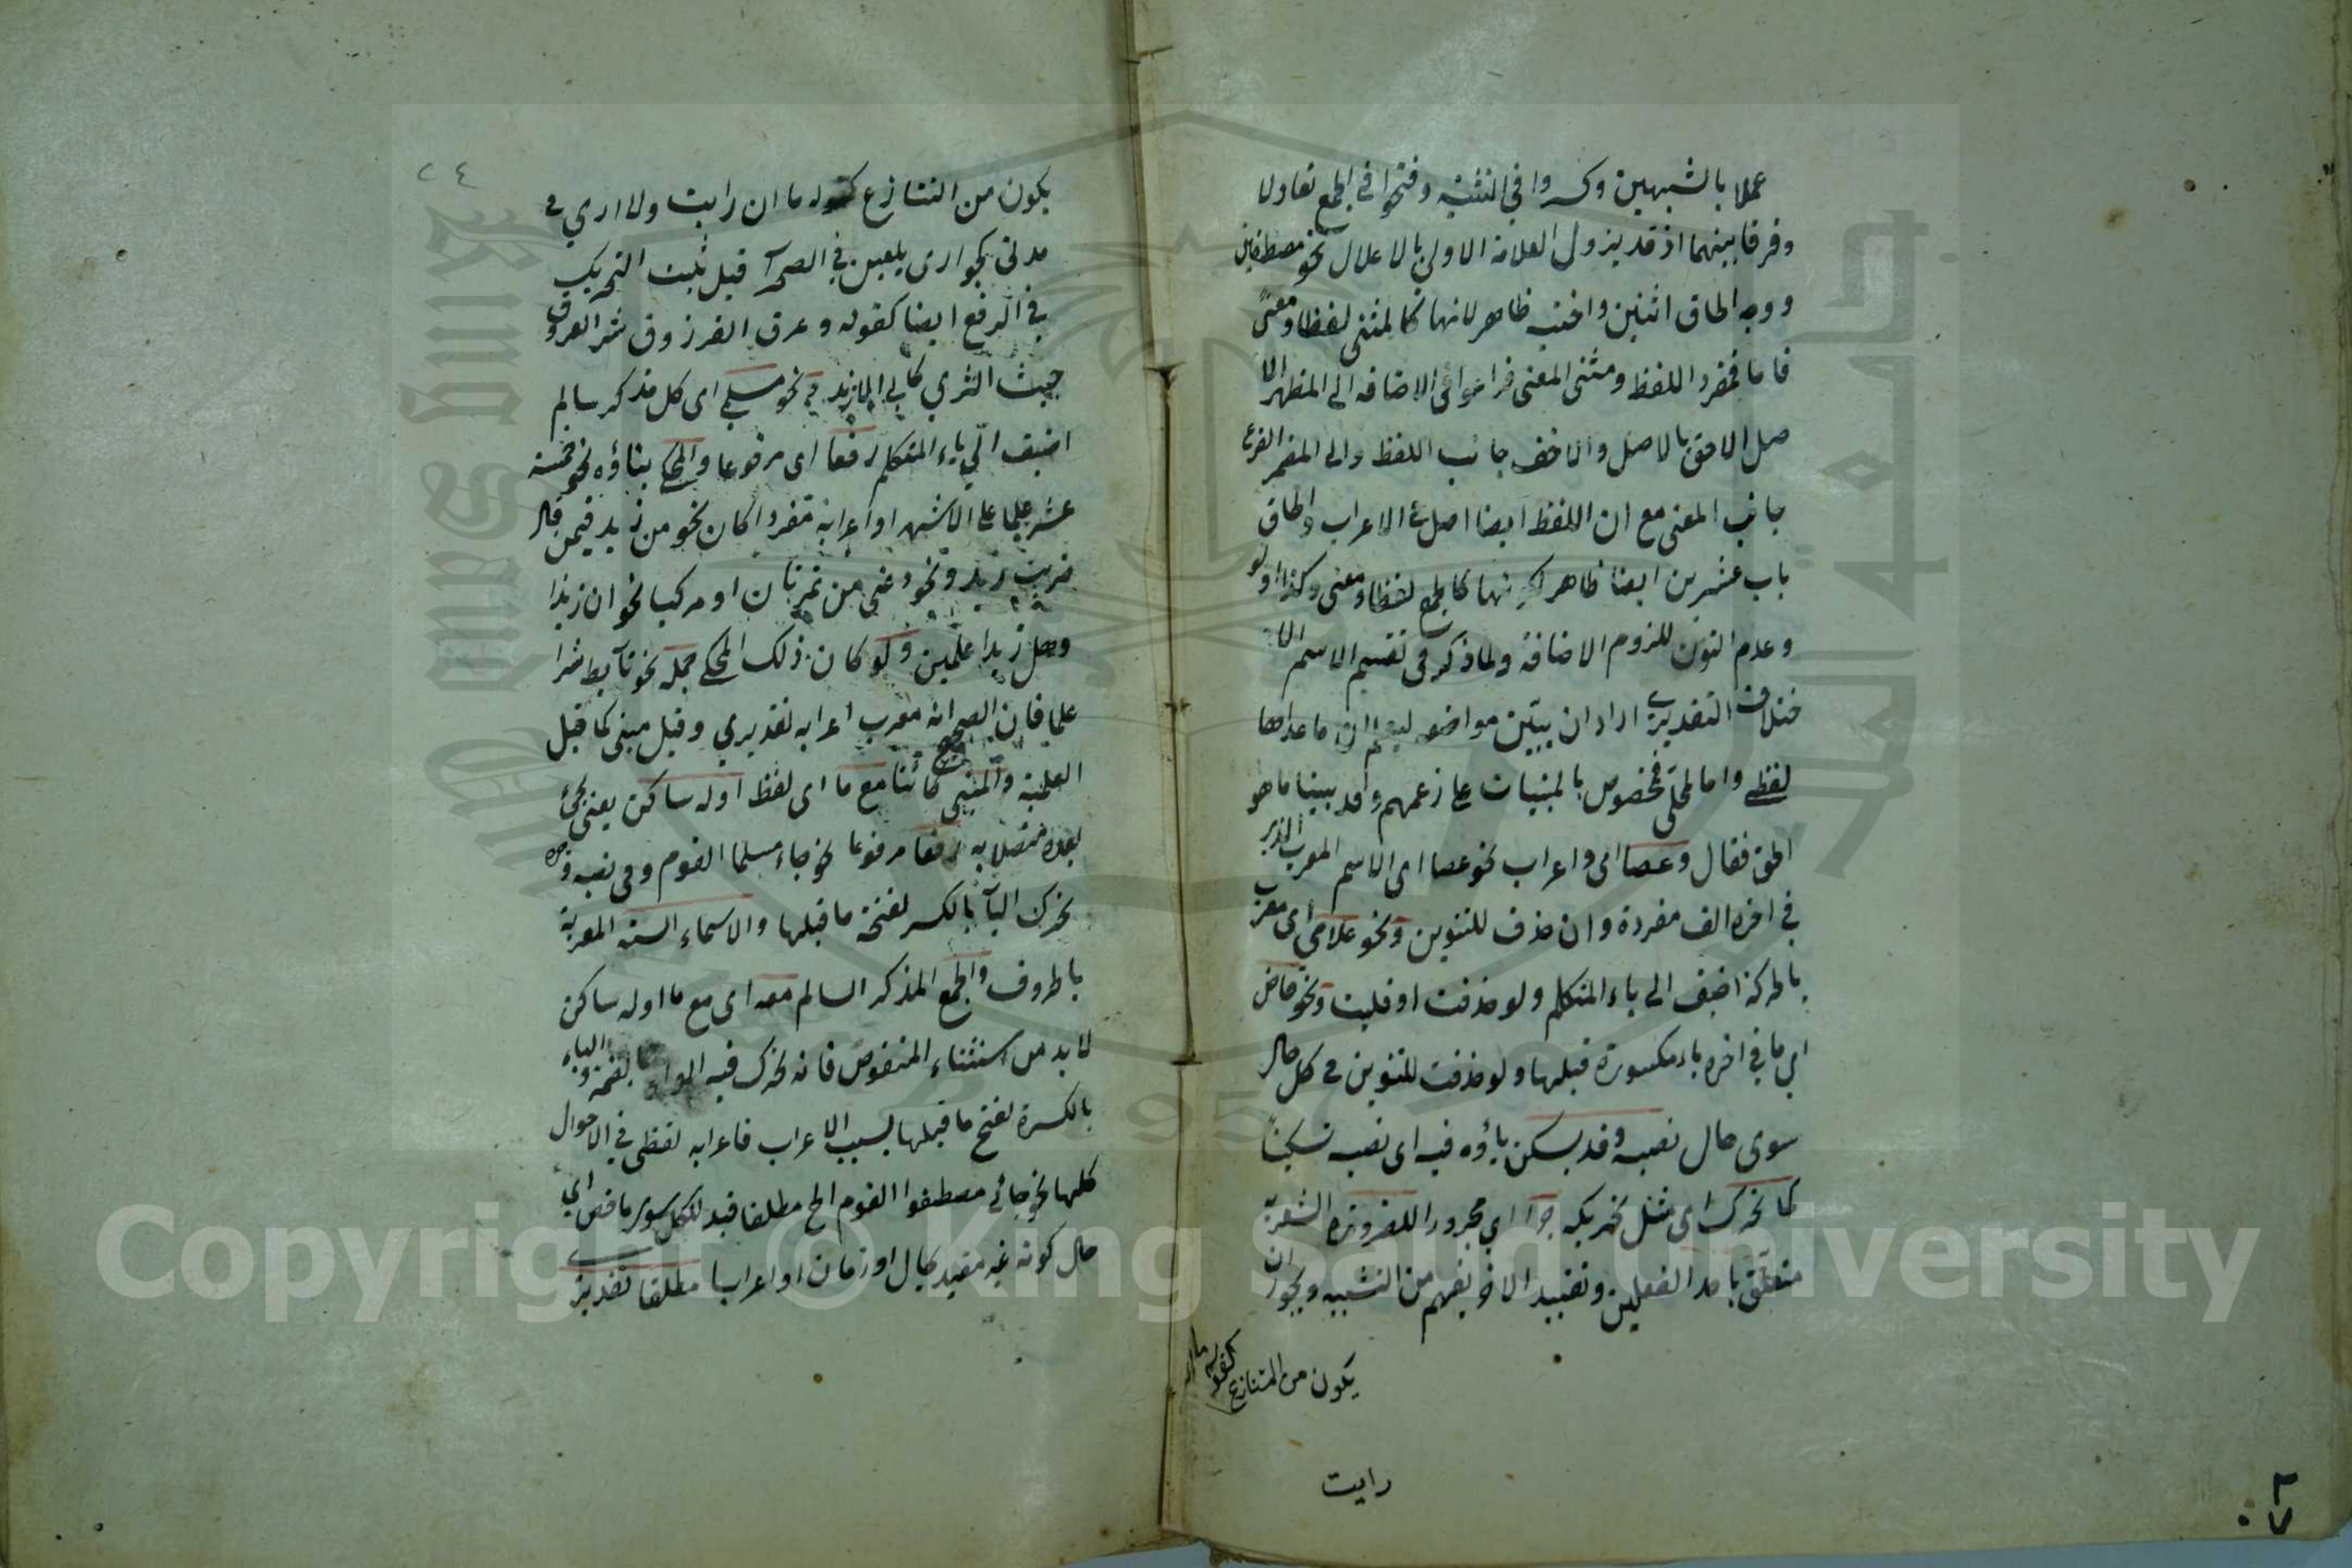 عملا بالشبهين وكسروا في التثنية وفتحوا في الجمع تعادلا
وفرقا بينهما اذ قد يزول العلامة الاولى بالاعلال نحو مصطفين
ووجه الحاق اثنين واخيه ظاهر لانها كالمثنى لفظا ومعنى
فاما فمفرد اللفظ ومثنى المعنى فراعوا في الاضافه الى المظهر الا
صل الاحق بالاصل والاخف جانب اللفظ والى المضمر الفرع
جانب المعنى مع ان اللفظ ايضا اصل في الاعراب والحاق
باب عشرين ايضا ظاهر لكونها كالجمع لفظا ومعنى وكذا اولو
وعدم النون للزوم الاضافة ولما ذكر في تقسيم الاسم الا
ختلاف التقديري اراد ان يبين مواضعه ليعلم ان ما عداها
لفظي واما المحلي فمخصوص بالمبنيات على زعمهم وقد بينا ما هو
الحق فقال وعصا اى واعراب نحو عصا اى الاسم المعرب الذي
في اخره الف مفردة وان حذف للتنوين ونحو غلامي اى معرب
بالحركة اضيف الى ياء المتكلم ولو حذفت او قلبت ونحو قاض
اي ما في اخره ياء مكسورة قبلها ولو حذفت للتنوين في كل حال
سوى حال نصبه وقد يسكن ياؤه فيه اى نصبه تسكينا
كما تحرك اى مثل تحريكه جرا اي مجرورا للضرورة الشعرية
متعلق باحد الفعلين وتقييد الاخر يفهم من التشبيه ويجوز ان
يكون من التنازع كقوله ما ان
رايت
٢٤
يكون من التنازع كقوله ما ان رايت ولا ارى في
مدتي كجواري يلعبن في الصحرآ قيل ثبت التحريك
في الرفع ايضا كقوله وعرق الفرزوق شر العروق
خبيث الثرى كابى الازند ونحو مسلمي اى كل مذكر سالم
اضيف الى ياء المتكلم رفعا اى مرفوعا والمحكي بناؤه نحو خمسة
عشر علما على الاشهر او اعرابه مفردا كان نحو من زيد فيمن قال
ضربت زيد ونحو دعني من تمرتان او مركبا نحو ان زيدا
وهل زيدا علمين ولو كان ذلك المحكي جملة نحو تأبط شرا
علما فان الصحيح انه معرب اعرابه تقديري وقيل مبنى كما قبل
العلمية والمثنى كائنا مع ما اى لفظ اوله ساكن يعنى يجئ
بعده متصلا به رفعا مرفوعا نحو جاء مسلما القوم وفي نصبه وجره
تحرك اليآ بالكسر لفتحة ما قبلها والاسماء الستة المعربة
بالحروف والجمع المذكر السالم معه اى مع ما اوله ساكن
لا بد من استثناء المنقوص فانه تحرك فيه الواو بالضمة والياء
بالكسرة لفتح ما قبلها بسبب الاعراب فاعرابه لفظي في الاحوال
كلها نحو جائنى مصطفوا القوم الخ مطلقا قيد للكل سوى ما قص اي
حال كونه غير مقيد بحال او زمان او اعراب مطلقا تقديري
Copyright © King Saud University